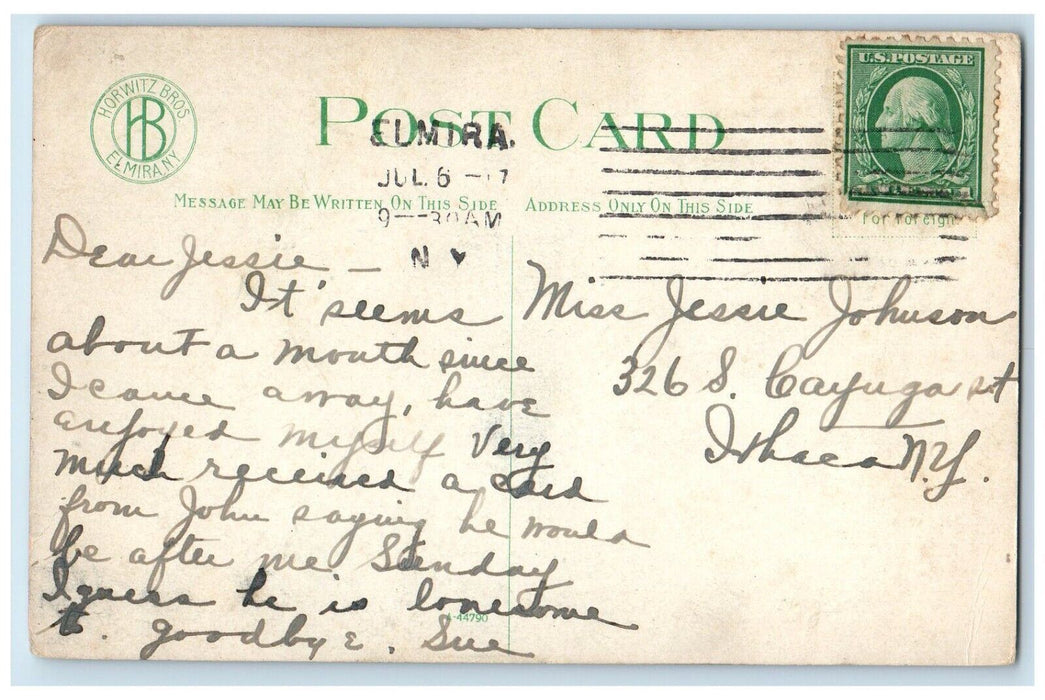 HORWITZ BROS
HB
ELMIRA.NY
POST CARD
U.S.POSTAGE
ELMIRA.
JUL 6 -17
9-30AM
N Y
MESSAGE MAY BE WRITTEN ON THIS SIDE
ADDRESS ONLY ON THIS SIDE
For Foreign
Dear Jessie –
It seems
about a month since
I came away, have
enjoyed myself very
much received a card
from John saying he would
be after me Sunday
I guess he is lonesome
goodbye. Sue
A-44790
Miss Jessie Johnson
326 S. Cayuga st
Ithaca N.Y.